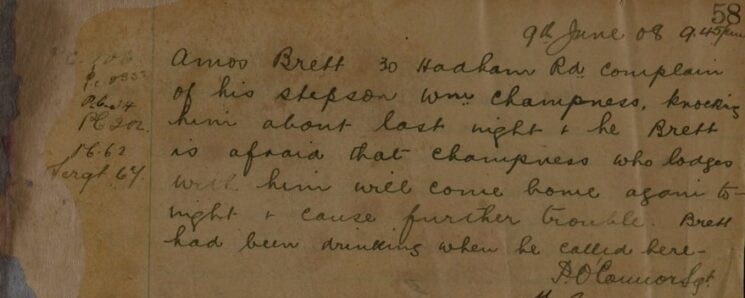 58
9th June 08 9.45pm
Amos Brett 30 Hadham Rd. complain
of his stepson Wm. Champness, knocking
him about last night & he Brett
is afraid that Champness who lodges
with him will come home again to-
night & cause further trouble. Brett
had been drinking when he called here-
D. O'Connor Sgt.
PC 202
PC 62
Sergt 64